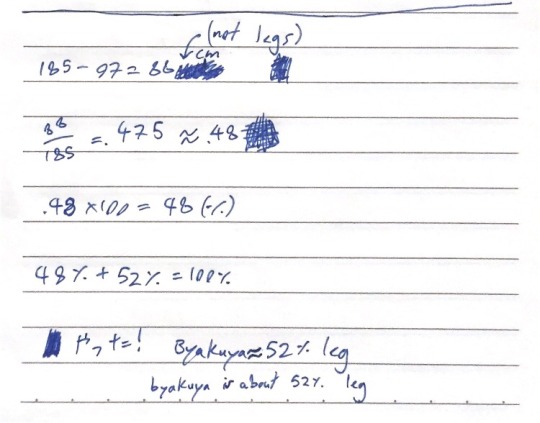 (not legs)
185 - 97 = 88 cm
88/185 = .475 ≈ .48
.48 × 100 = 48 (%)
48% + 52% = 100%
やった! Byakuya ≈ 52% leg
byakuya is about 52% leg